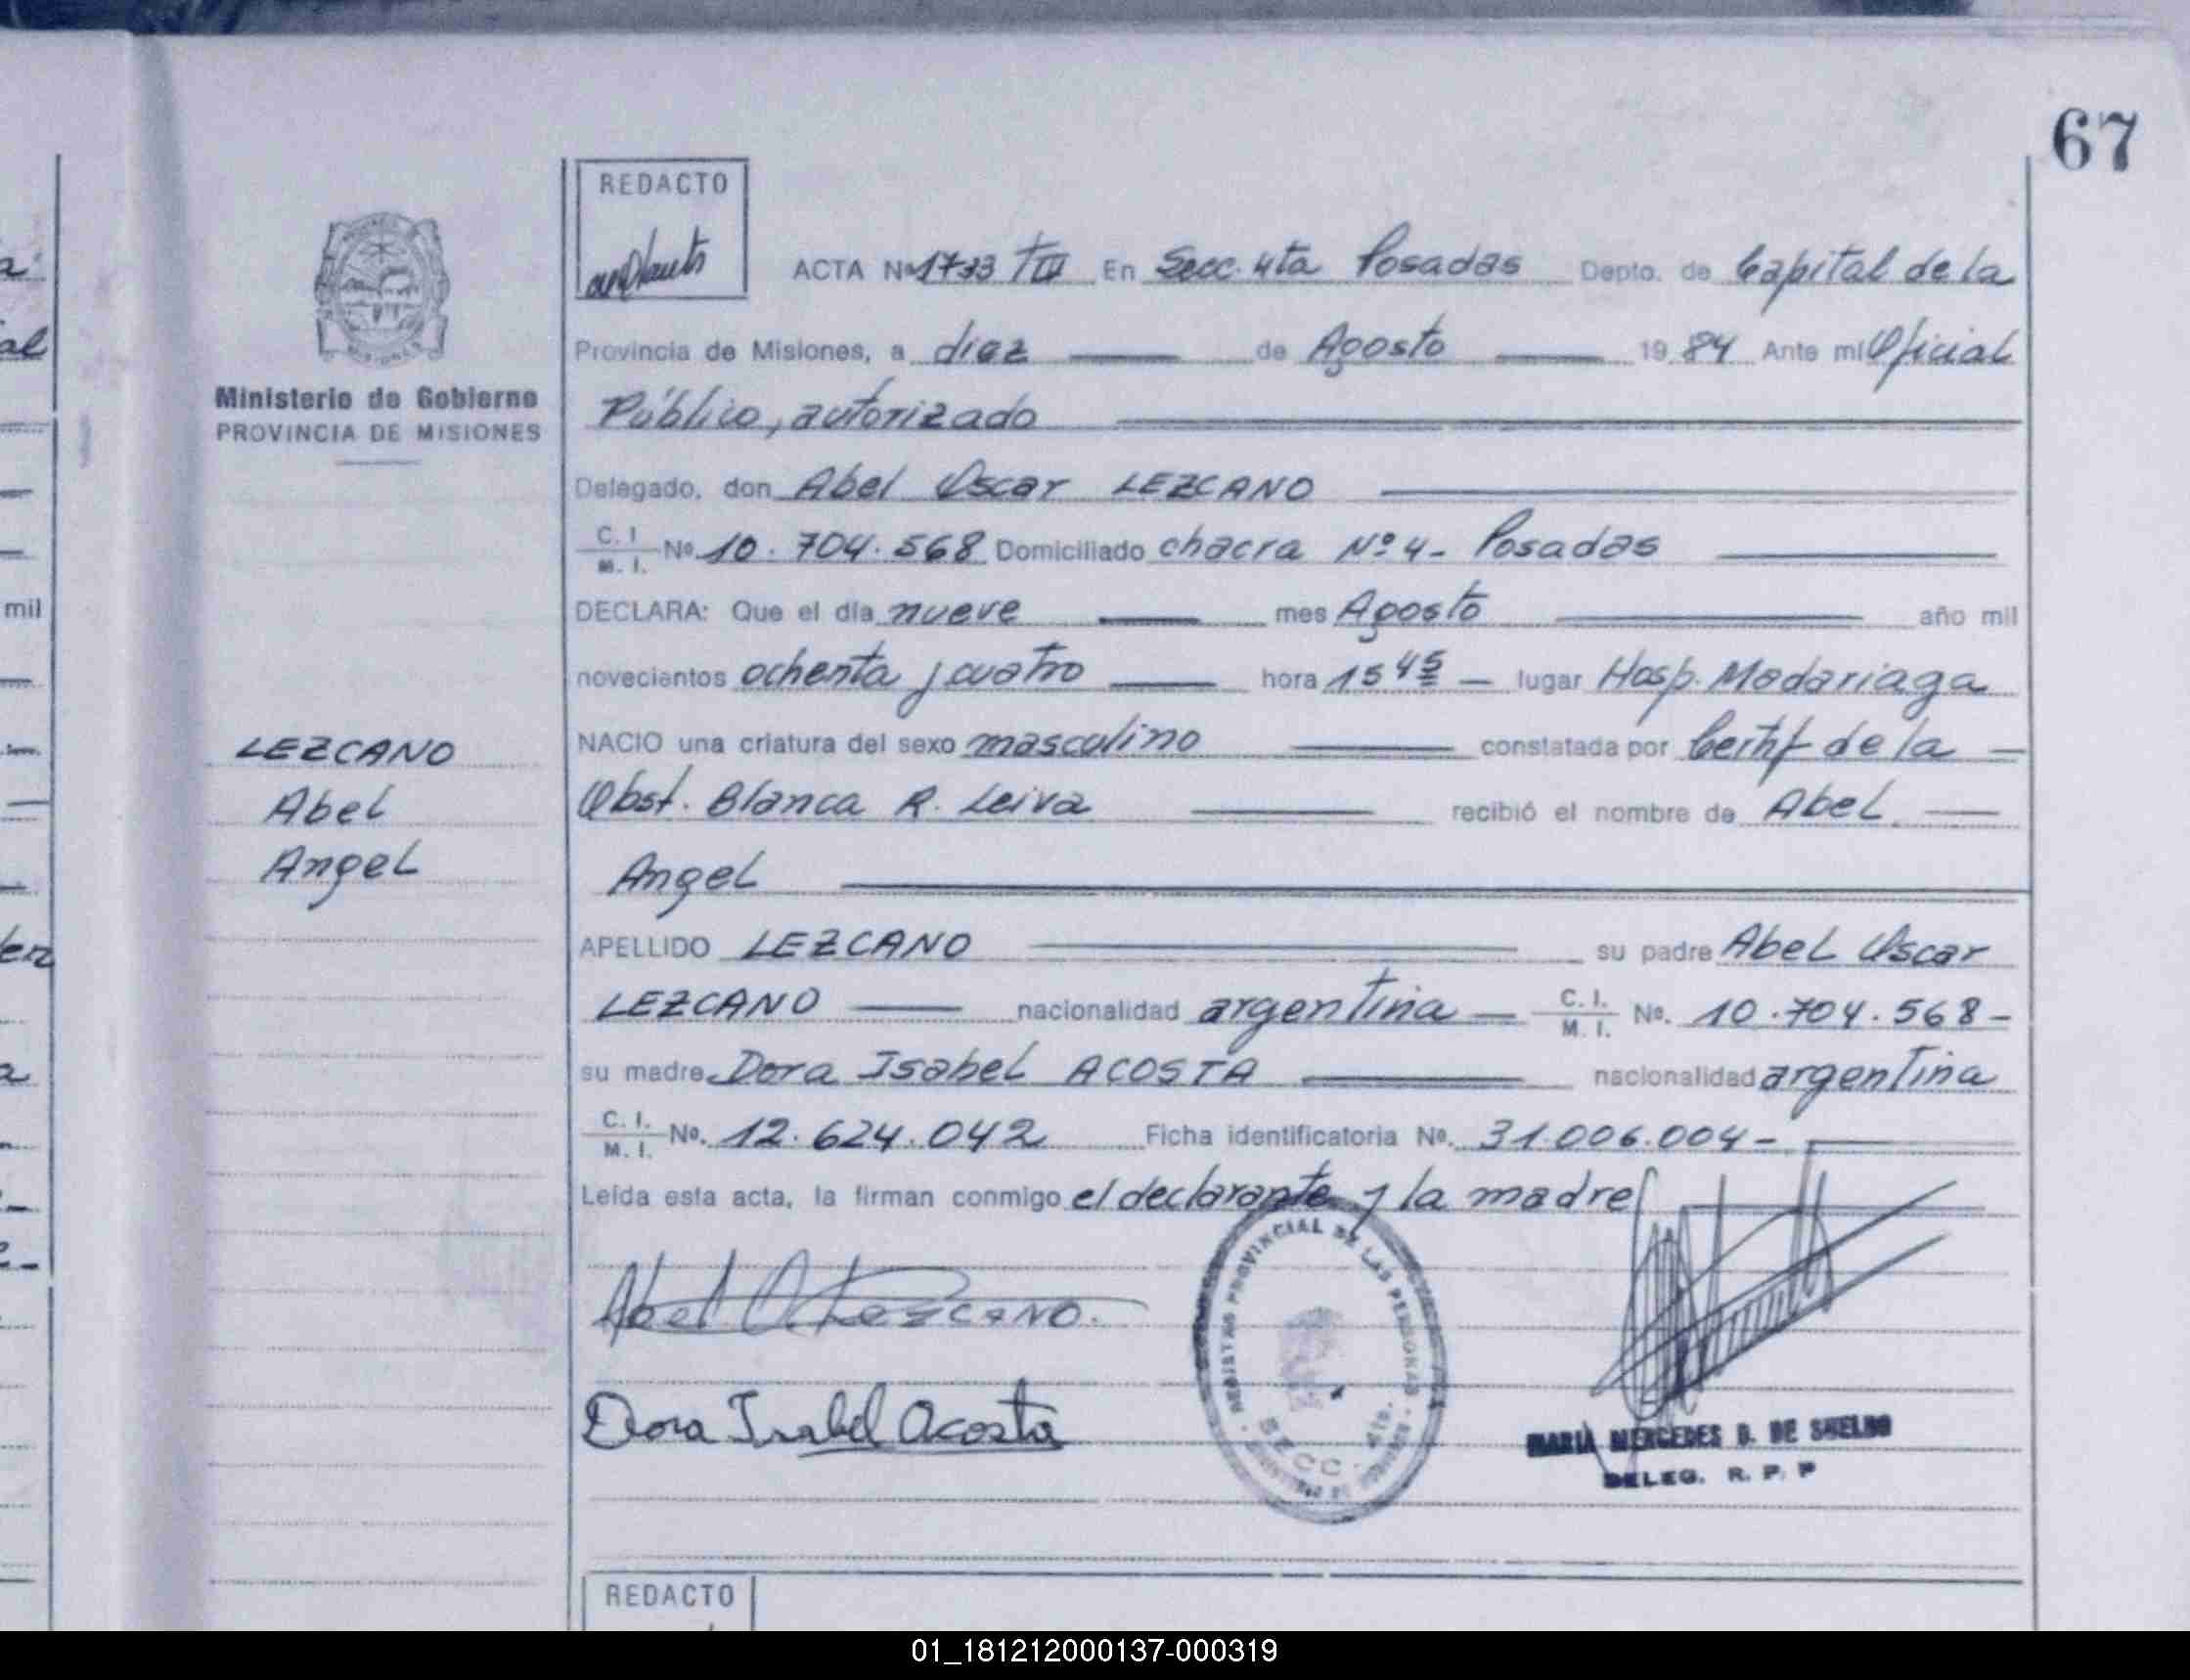 67
REDACTO
ACTA Nº 1733 TIII En Secc. 4ta Posadas Depto. de Capital de la
Provincia de Misiones, a diez de Agosto 1984 Ante mi Oficial
Ministerio de Gobierno
PROVINCIA DE MISIONES
Público, autorizado
Delegado, don Abel Oscar LEZCANO
C. I. M. I. Nº 10.704.568 Domiciliado chacra Nº 4- Posadas
DECLARA: Que el día nueve mes Agosto año mil
novecientos ochenta y cuatro hora 15 45 lugar Hosp. Madariaga
NACIO una criatura del sexo masculino constatada por Certif de la
Obst. Blanca R. Leiva recibió el nombre de Abel
Angel
LEZCANO
Abel
Angel
APELLIDO LEZCANO su padre Abel Oscar
LEZCANO nacionalidad argentina C. I. M. I. Nº. 10.704.568-
su madre Dora Isabel ACOSTA nacionalidad argentina
C. I. M. I. Nº. 12.624.042 Ficha identificatoria Nº. 31.006.004-
Leída esta acta, la firman conmigo el declarante y la madre
Abel O Lezcano.
Dora Isabel Acosta
REGISTRO PROVINCIAL DE LAS PERSONAS
SECC. 4ta.
MARIA MERCEDES D. DE
DELEG. R. P. P
REDACTO
mil
01_181212000137-000319